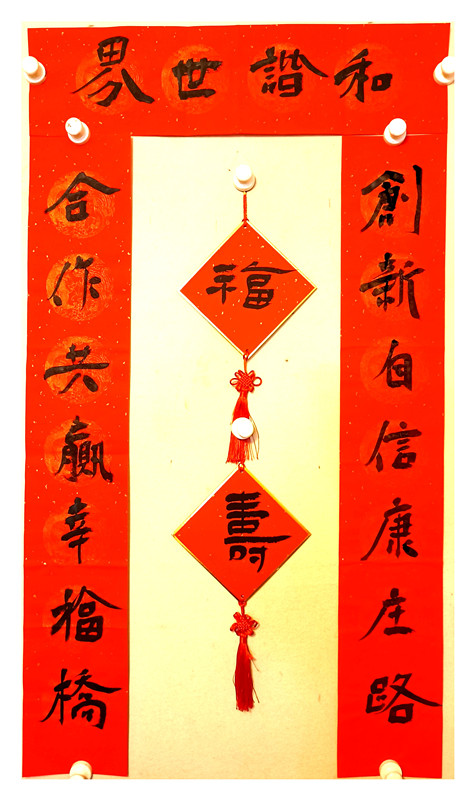 和諧世界
創新自信康庄路
合作共贏幸福橋
福
壽